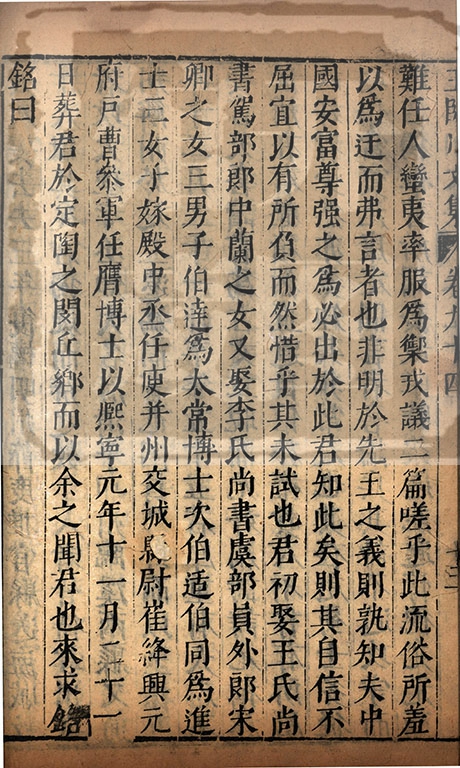 王臨川文集 卷九十四 十三
難任人蠻夷率服爲禦戎議二篇嗟乎此流俗所羞
以爲迂而弗言者也非明於先王之義則孰知夫中
國安富尊强之爲必出於此君知此矣則其自信不
屈宜以有所負而然惜乎其未試也君初娶王氏尚
書駕部郎中蘭之女又娶李氏尚書虞部員外郎宋
卿之女三男子伯達爲太常博士次伯适伯同爲進
士三女子嫁殿中丞任庾并州交城縣尉崔絳興元
府戸曹叅軍任膺博士以熙寧元年十一月二十一
日葬君於定陶之閔丘鄉而以余之聞君也來求銘
銘曰